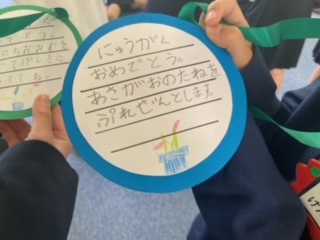 にゅうがく
おめでとう。
あさがおのたねを
ぷれぜんとします。